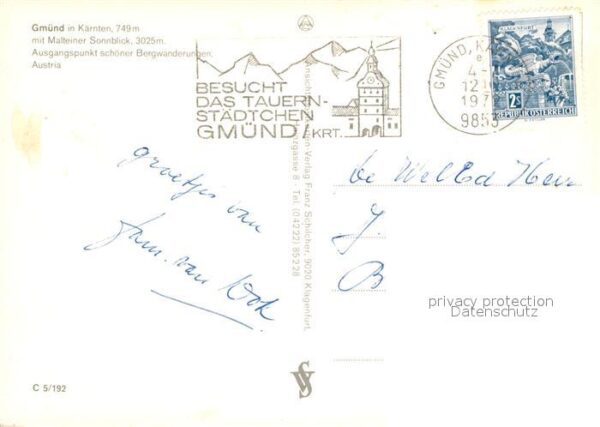 Gmünd in Kärnten, 749m
mit Malteiner Sonnblick, 3025m.
Ausgangspunkt schöner Bergwanderungen.
Austria
BESUCHT
DAS TAUERN-
STÄDTCHEN
GMÜND/KRT.
GMÜND, K
e
12
197
9853
2S
REPUBLIK ÖSTERREICH
Verlag Franz Schilcher, 9020 Klagenfurt,
gasse 8 - Tel. (04222) 85 2 28
groetjes van
fam. van Kook
de Wel Ed Heer
J.
B
privacy protection
Datenschutz
C 5/192